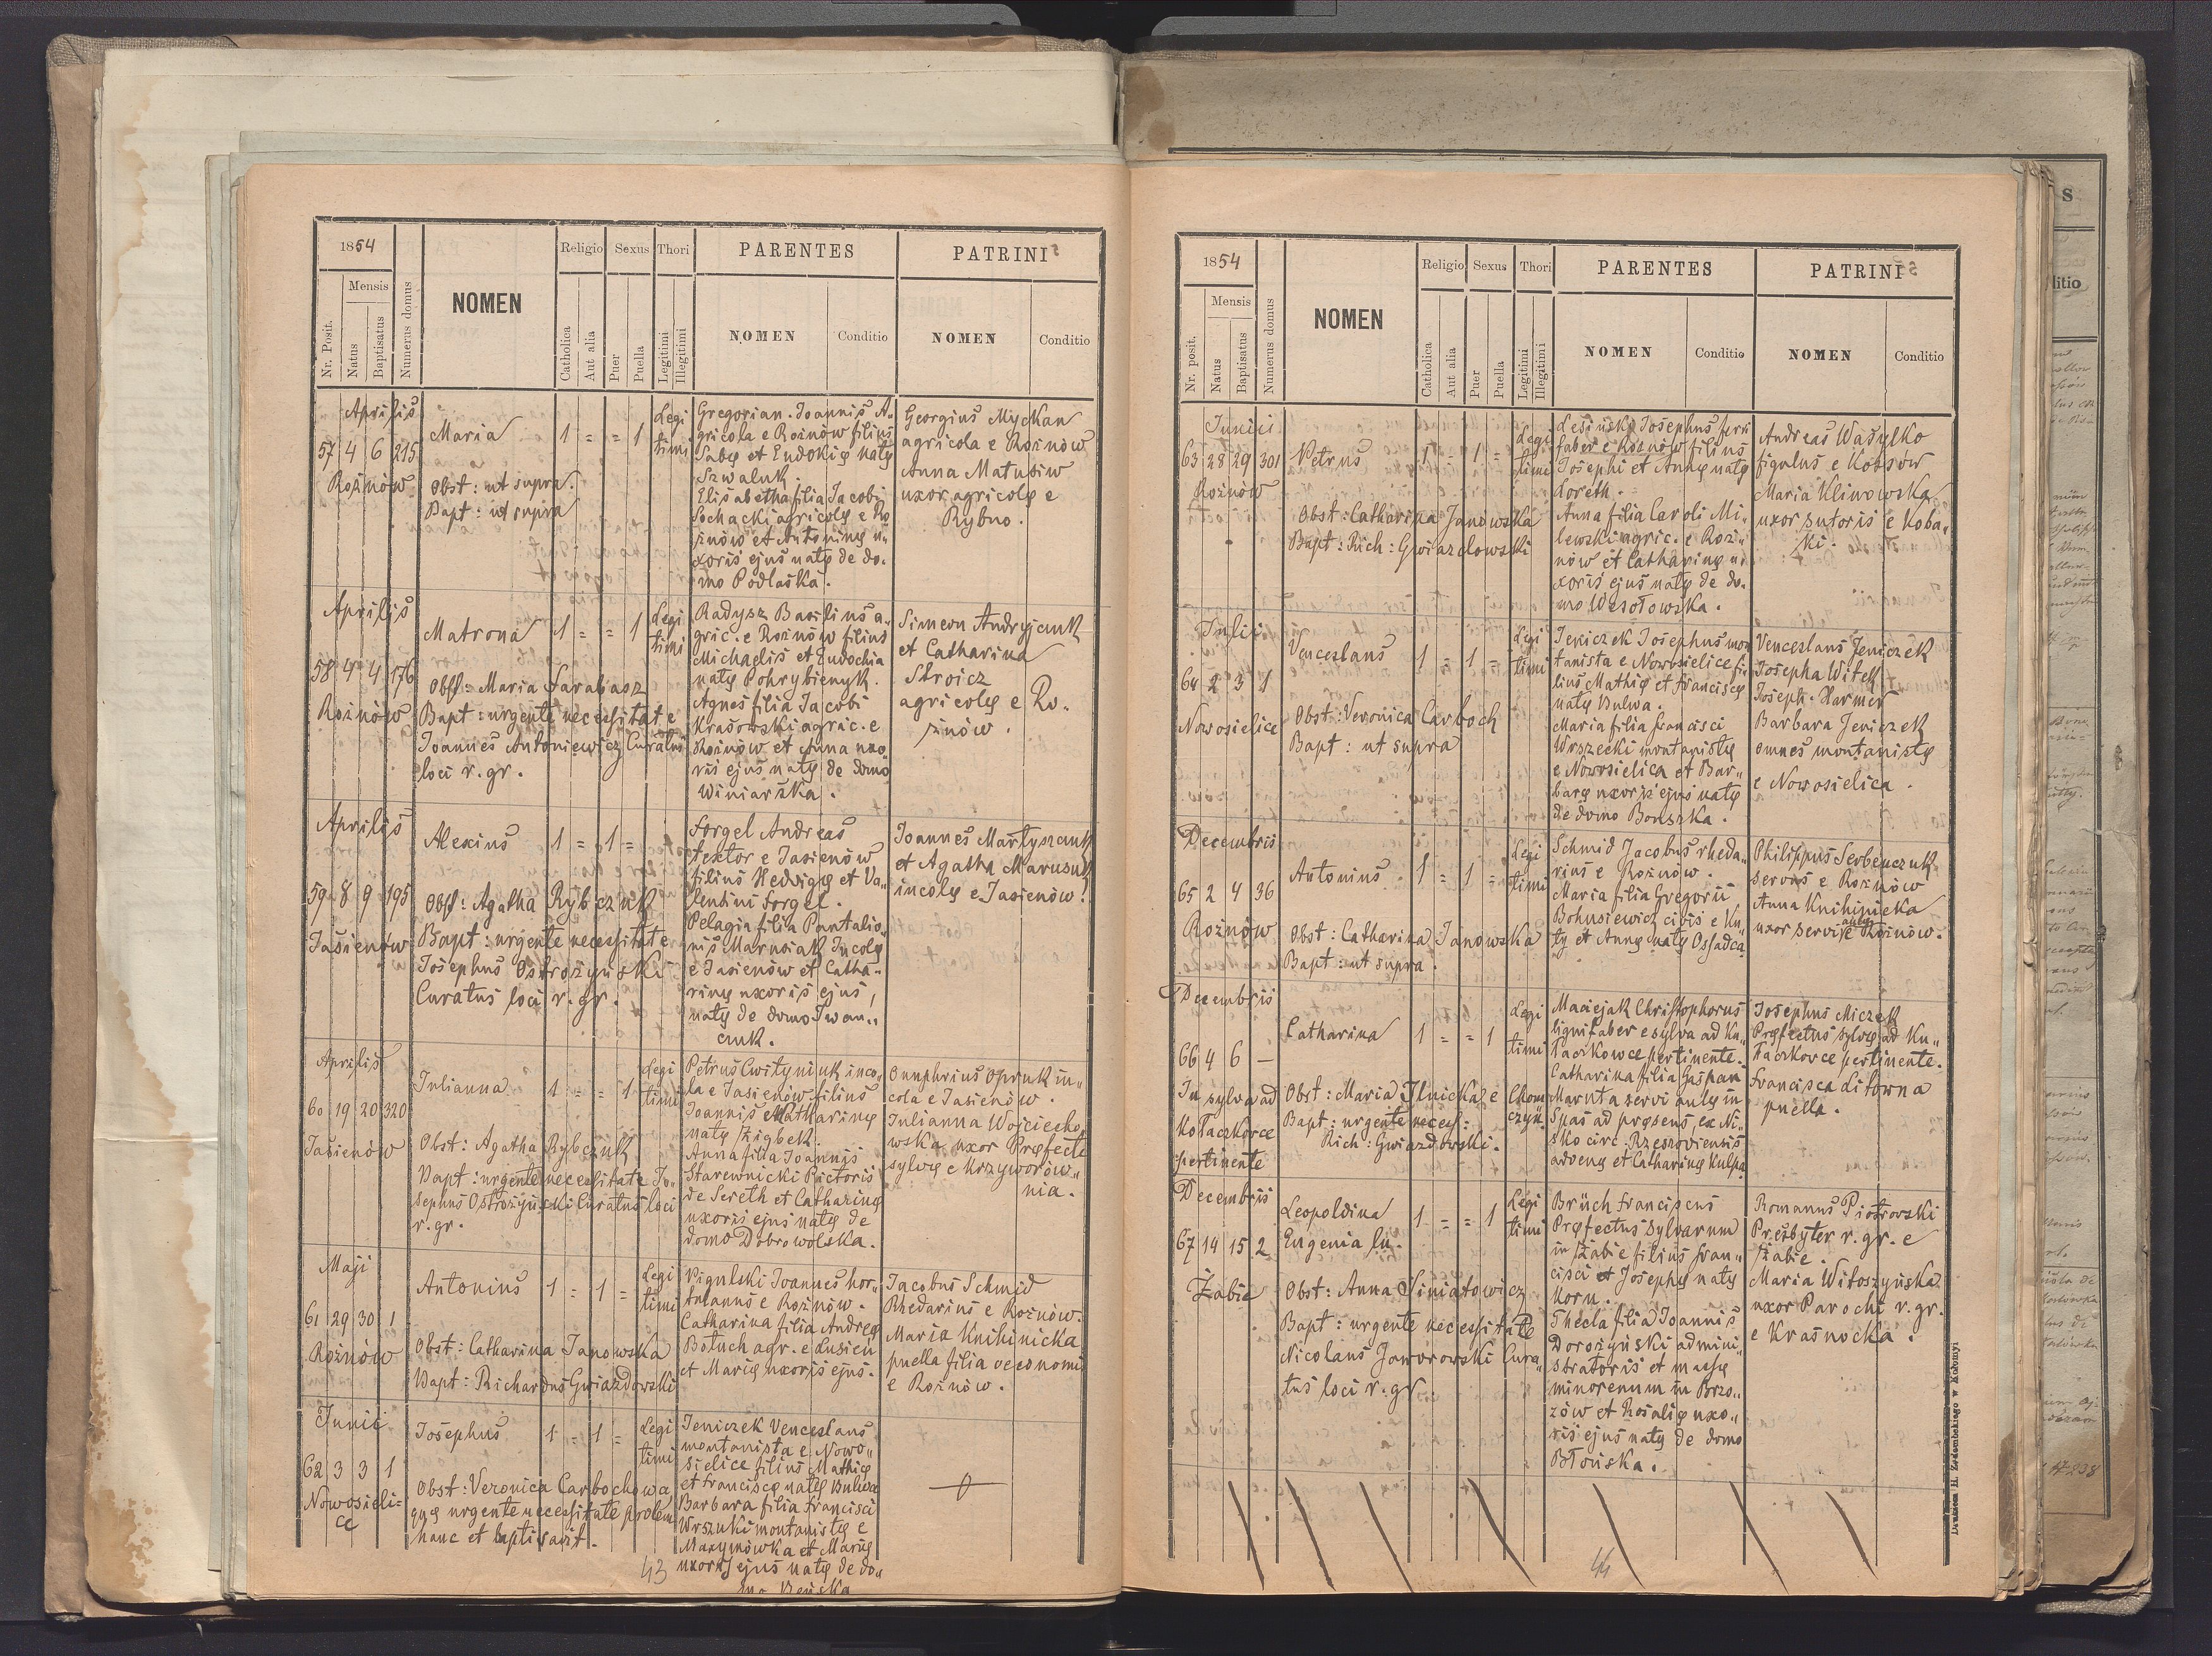 1854
Mensis
Nr. Posit.
Natus
Baptisatus
Numerus domus
NOMEN
Religio
Catholica
Aut alia
Sexus
Puer
Puella
Thori
Legitimi
Illegitimi
PARENTES
NOMEN
Conditio
PATRINI
NOMEN
Conditio
Aprilis
57 4 6 215
Rożnów
Maria
Obst: ut supra.
Bapt: ut supra
1 = = 1
Legi
timi
Gregorian. Joannis A„
gricola e Rożnów filius
Sabę et Eudokię natę
Szwaluk.
Elisabetha filia Jacobi
Sochacki agricolę e Ro
żnów et Antoninę u„
xoris ejus natę de do„
mo Podlaska.
Georgius Mychan
agricola e Rożnów
Anna Matusiw
uxor agricolę e
Rybno.
Aprilis
58 4 4 176
Rożnów
Matrona
Obst: Maria Farabasz
Bapt: urgente necessitate
Joannes Antoniewicz Curatus
loci r. gr.
1 = = 1
Legi
timi
Radysz Basilius a„
gric. e Rożnów filius
Michaelis et Eudochia
natę Pohrybienyk.
Agnes filia Jacobi
Krasowski agric. e
Rożnów et Anna uxo
ris ejus natę de domo
Winiarska.
Simeon Andryjcuk
et Catharina
Stroicz
agricolę e Ro„
żnów.
Aprilis
59 8 9 195
Jasienów
Alexius
Obst: Agatha Rybczuk
Bapt: urgente necessitate
Josephus Ostrożyński
Curatus loci r. gr.
1 = 1 =
Forgel Andreas
textor e Jasienów
filius Hedvigę et Va„
lentini Forgel.
Pelagia filia Pantalio„
nis Marusiak Incolę
e Jasienów et Catha„
rinę uxoris ejus,
natę de domo Iwan„
cuk.
Joannes Martyszcuk
et Agatha Marusuk
incolę e Jasienów!
Aprilis
60 19 20 320
Jasienów
Julianna
Obst: Agatha Rybczuk
Bapt: urgente necessitate Jo„
sephus Ostrożyński Curatus loci
r. gr.
1 = = 1
Legi
timi
Petrus Cwityniuk inco
la e Jasienów filius
Joannis et Catharinę
natę
Anna filia Joannis
Starewnicki Pictoris
de Sereth et Catharinę
uxoris ejus natę de
domo Dobrowolska.
Onuphrius Opruk in„
cola e Jasienów.
Julianna Wojciecho
wska uxor Pręfecti
sylvę e Krzyworów„
nia.
Maji
61 29 30 1
Rożnów
Antonius
Obst: Catharina Janowska
Bapt: Richardus Gwiazdowski
1 = 1 =
Legi
timi
Pigulski Joannes hor„
tulanus e Rożnów.
Catharina filia Andreę
Botuch agr. e Lusień
et Marię uxoris ejus.
Jacobus Schmid
Rhedarius e Rożnów.
Maria Knihinicka
puella filia oeconomi
e Rożnów.
Junii
62 3 3 1
Nowosieli=
ce
Josephus
Obst: Veronica Carbochowa
quę urgente necessitate prolem
hanc et baptisavit.
1 = 1 =
Legi
timi
Jeniczek Venceslaus
montanista e Nowo„
sielice filius Mathię
et Franciscę natę Bulwa
Barbara filia Francisci
Wrszuki montanistę e
Maxymówka et Marię
uxoris ejus natę de do„
mo
43
1854
Mensis
Nr. posit.
Natus
Baptisatus
Numerus domus
NOMEN
Religio
Catholica
Aut alia
Sexus
Puer
Puella
Thori
Legitimi
Illegitimi
PARENTES
NOMEN
Conditio
PATRINI
NOMEN
Conditio
Junii
63 28 29 301
Rożnów
Petrus
Obst: Catharina Janowska
Bapt: Rich: Gwiazdowski
1 = 1 =
Legi
timi
Lesiński Josephus ferri
faber e Rożnów filius
Josephi et Annę natę
Loreth.
Anna filia Caroli Mi„
lewski agric. e Roż„
nów et Catharinę u„
xoris ejus natę de do„
mo Wesołowska.
Andreas Wasylko
figulus e Kossów
Maria Klinowska
uxor sutoris e Koba„
ki.
Julii
64 2 3 1
Nowosielice
Venceslaus
Obst: Veronica Carboch
Bapt: ut supra
1 = 1 =
Legi
timi
Jeniczek Josephus mon
tanista e Nowosielice fi„
lius Mathię et Franciscę
natę Bulwa.
Maria filia Francisci
Wrszecki montanistę
e Nowosielica et Bar„
barę uxoris ejus natę
de domo Bonszka.
Venceslaus Jeniczek
Josepha Witek
Joseph. Harmer
Barbara Jeniczek
omnes montanistę
e Nowosielica.
Decembris
65 2 4 36
Rożnów
Antonius
Obst: Catharina Janowska
Bapt: ut supra.
1 = 1 =
Legi
timi
Schmid Jacobus rheda„
rius e Rożnów.
Maria filia Gregorii
Bohusiewicz civis e Ku„
ty et Annę natę Ossadca
Philippus Serbenczuk
servus e Rożnów
Anna Knihinicka
uxor servi aulę e Rożnów.
Decembris
66 4 6 —
In sylva ad
Kołaczkowce
pertinente
Catharina
Obst: Maria Ilnicka e Chom
czyn.
Bapt: urgente necess:
Rich: Gwiazdowski.
1 = = 1
Legi
timi
Maciejak Christophorus
lignifaber e sylva ad Ku„
łaczkowce pertinente.
Catharina filia Gaspari
Maruta servi aulę in
Spas ad pręsens, ex Ni„
sko circ. Rzeszoviensis
advenę et Catharinę Kulpa
Josephus Miczek
Pręfectus sylvę ad Ku„
łaczkovce pertinente.
Francisca Litowna
puella.
Decembris
67 14 15 2
Żabie
Leopoldina
Eugenia
Obst: Anna Siniatowicz
Bapt: urgente necessitate
Nicolaus Jaworowski Cura„
tus loci r. gr
1 = = 1
Legi
timi
Brüch Franciscus
Pręfectus sylvarum
in Żabie filius Fran„
cisci et Josephę natę
Korn.
Thecla filia Joannis
Dorożyński admini„
stratoris et massę
minorenum in Brzo„
zów et Rosalię uxo„
ris ejus natę de domo
Błońska.
Romanus Piotrowski
Presbyter r. gr. e
Żabie.
Maria Witoszyńska
uxor Parochi r. gr.
e Krasnoćka.
44
Drukiem H. Zadembskiego w Kołomyi
S
ditio